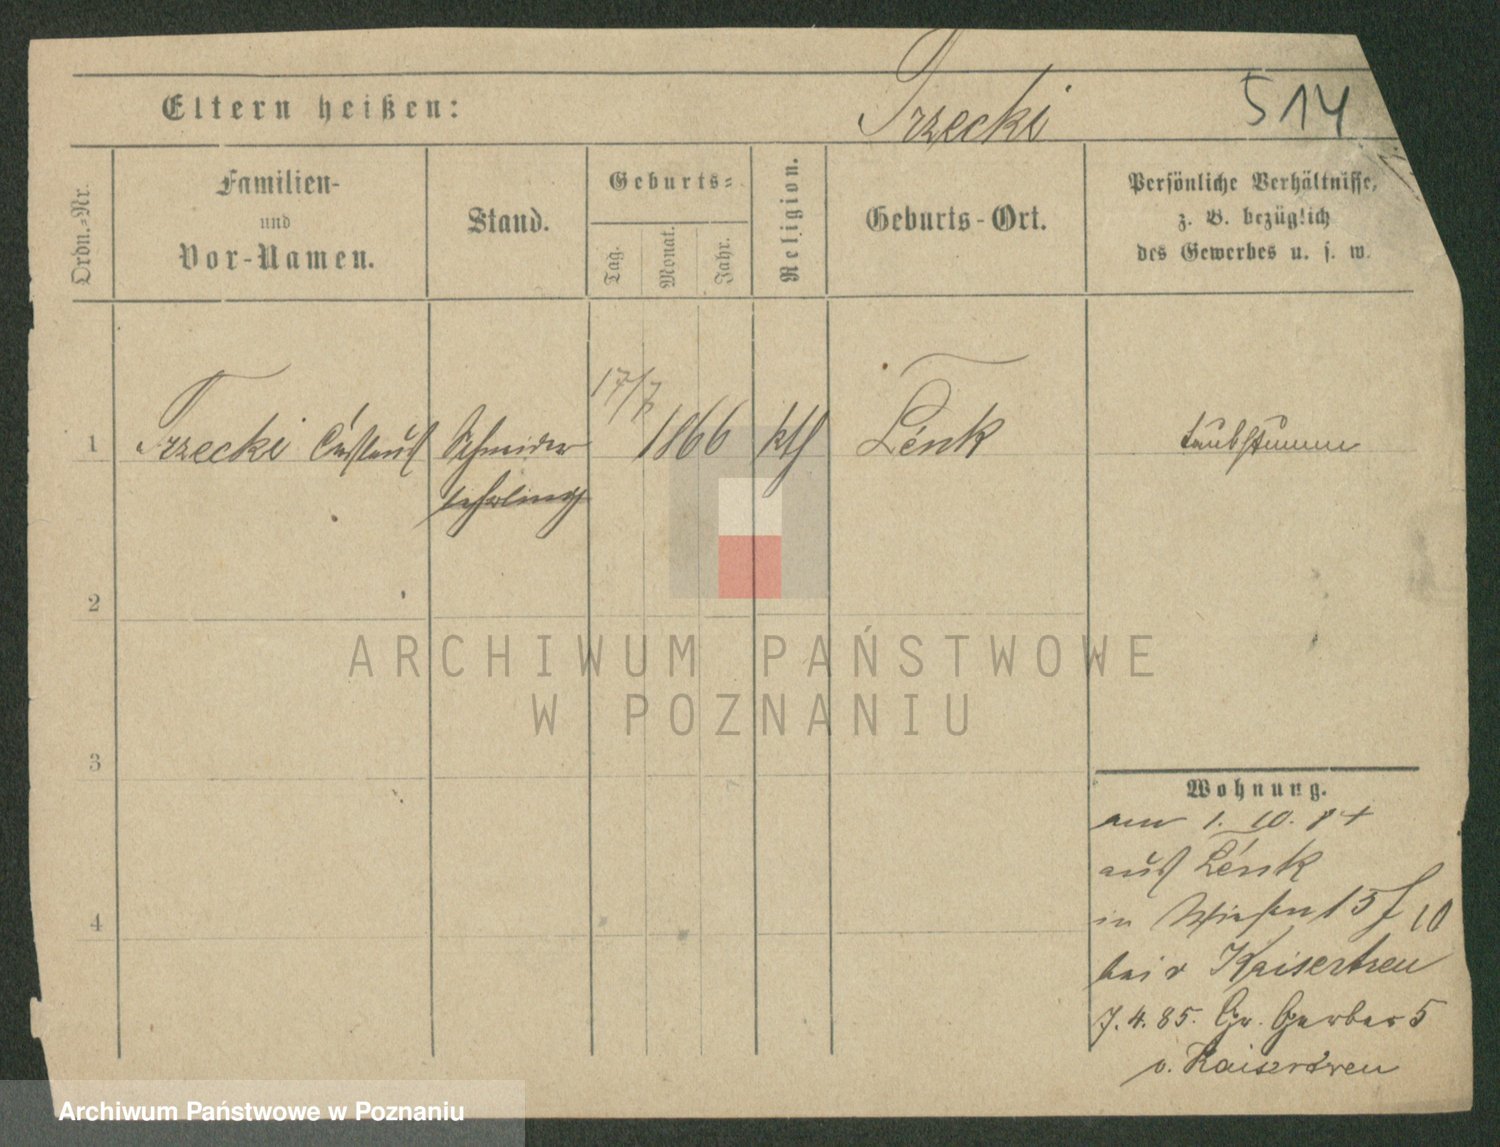 Eltern heißen:
Trzecki
514
Ordn.-Nr.
Familien-
und
Vor-Namen.
Stand.
Geburts-
Tag.
Monat.
Jahr.
Religion.
Geburts-Ort.
Persönliche Verhältnisse,
z. B. bezüglich
des Gewerbes u. s. w.
1 Trzecki Schneider 17/7 1866 kth Lénk taubstumm
lehrling
2
3
4
Wohnung.
am 1. 10. 84
aus Lénk
in 15 10
bei Kaisertreu
7. 4. 85. Gr. Gerber 5
v. Kaisertreu
ARCHIWUM PAŃSTWOWE
W POZNANIU
Archiwum Państwowe w Poznaniu